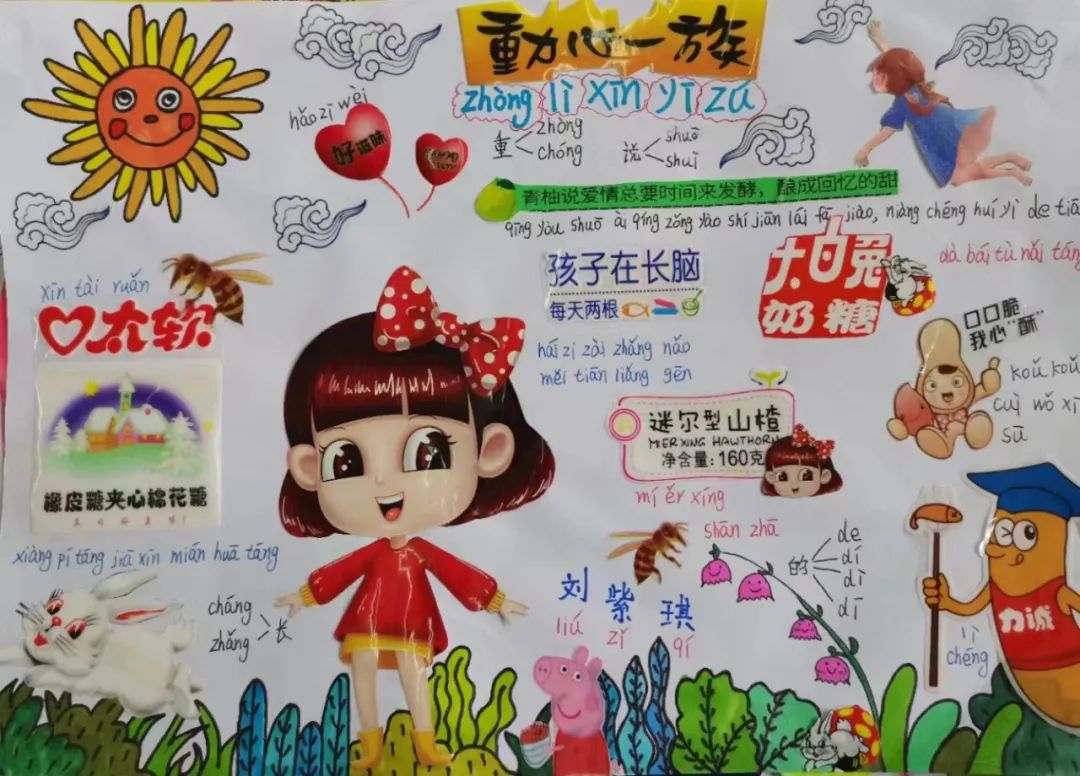 動心一族
zhòng lì xīn yī zú
hǎo zī wèi
好滋味
重
zhòng
chóng
说
shuō
shuì
青柚说爱情总要时间来发酵，酿成回忆的甜
qīng yòu shuō ài qíng zǒng yào shí jiān lái fā jiào, niàng chéng huí yì de tiá
xīn tài ruǎn
太软
孩子在长脑
每天两根
hái zi zài zhǎng nǎo
měi tiān liǎng gēn
大白兔
奶糖
dà bái tù nǎi táng
口口脆
我心“酥”
kǒu kǒu
cuì wǒ xī
sū
迷尔型山楂
MIER XING HAWTHORN
净含量:160克
mí ěr xíng
shān zhā
橡皮糖夹心棉花糖
xiàng pí táng jiā xīn mián huā táng
cháng
zhǎng
长
刘紫琪
liú zǐ qí
的
de
dí
dì
dī
力诚
lì
chéng